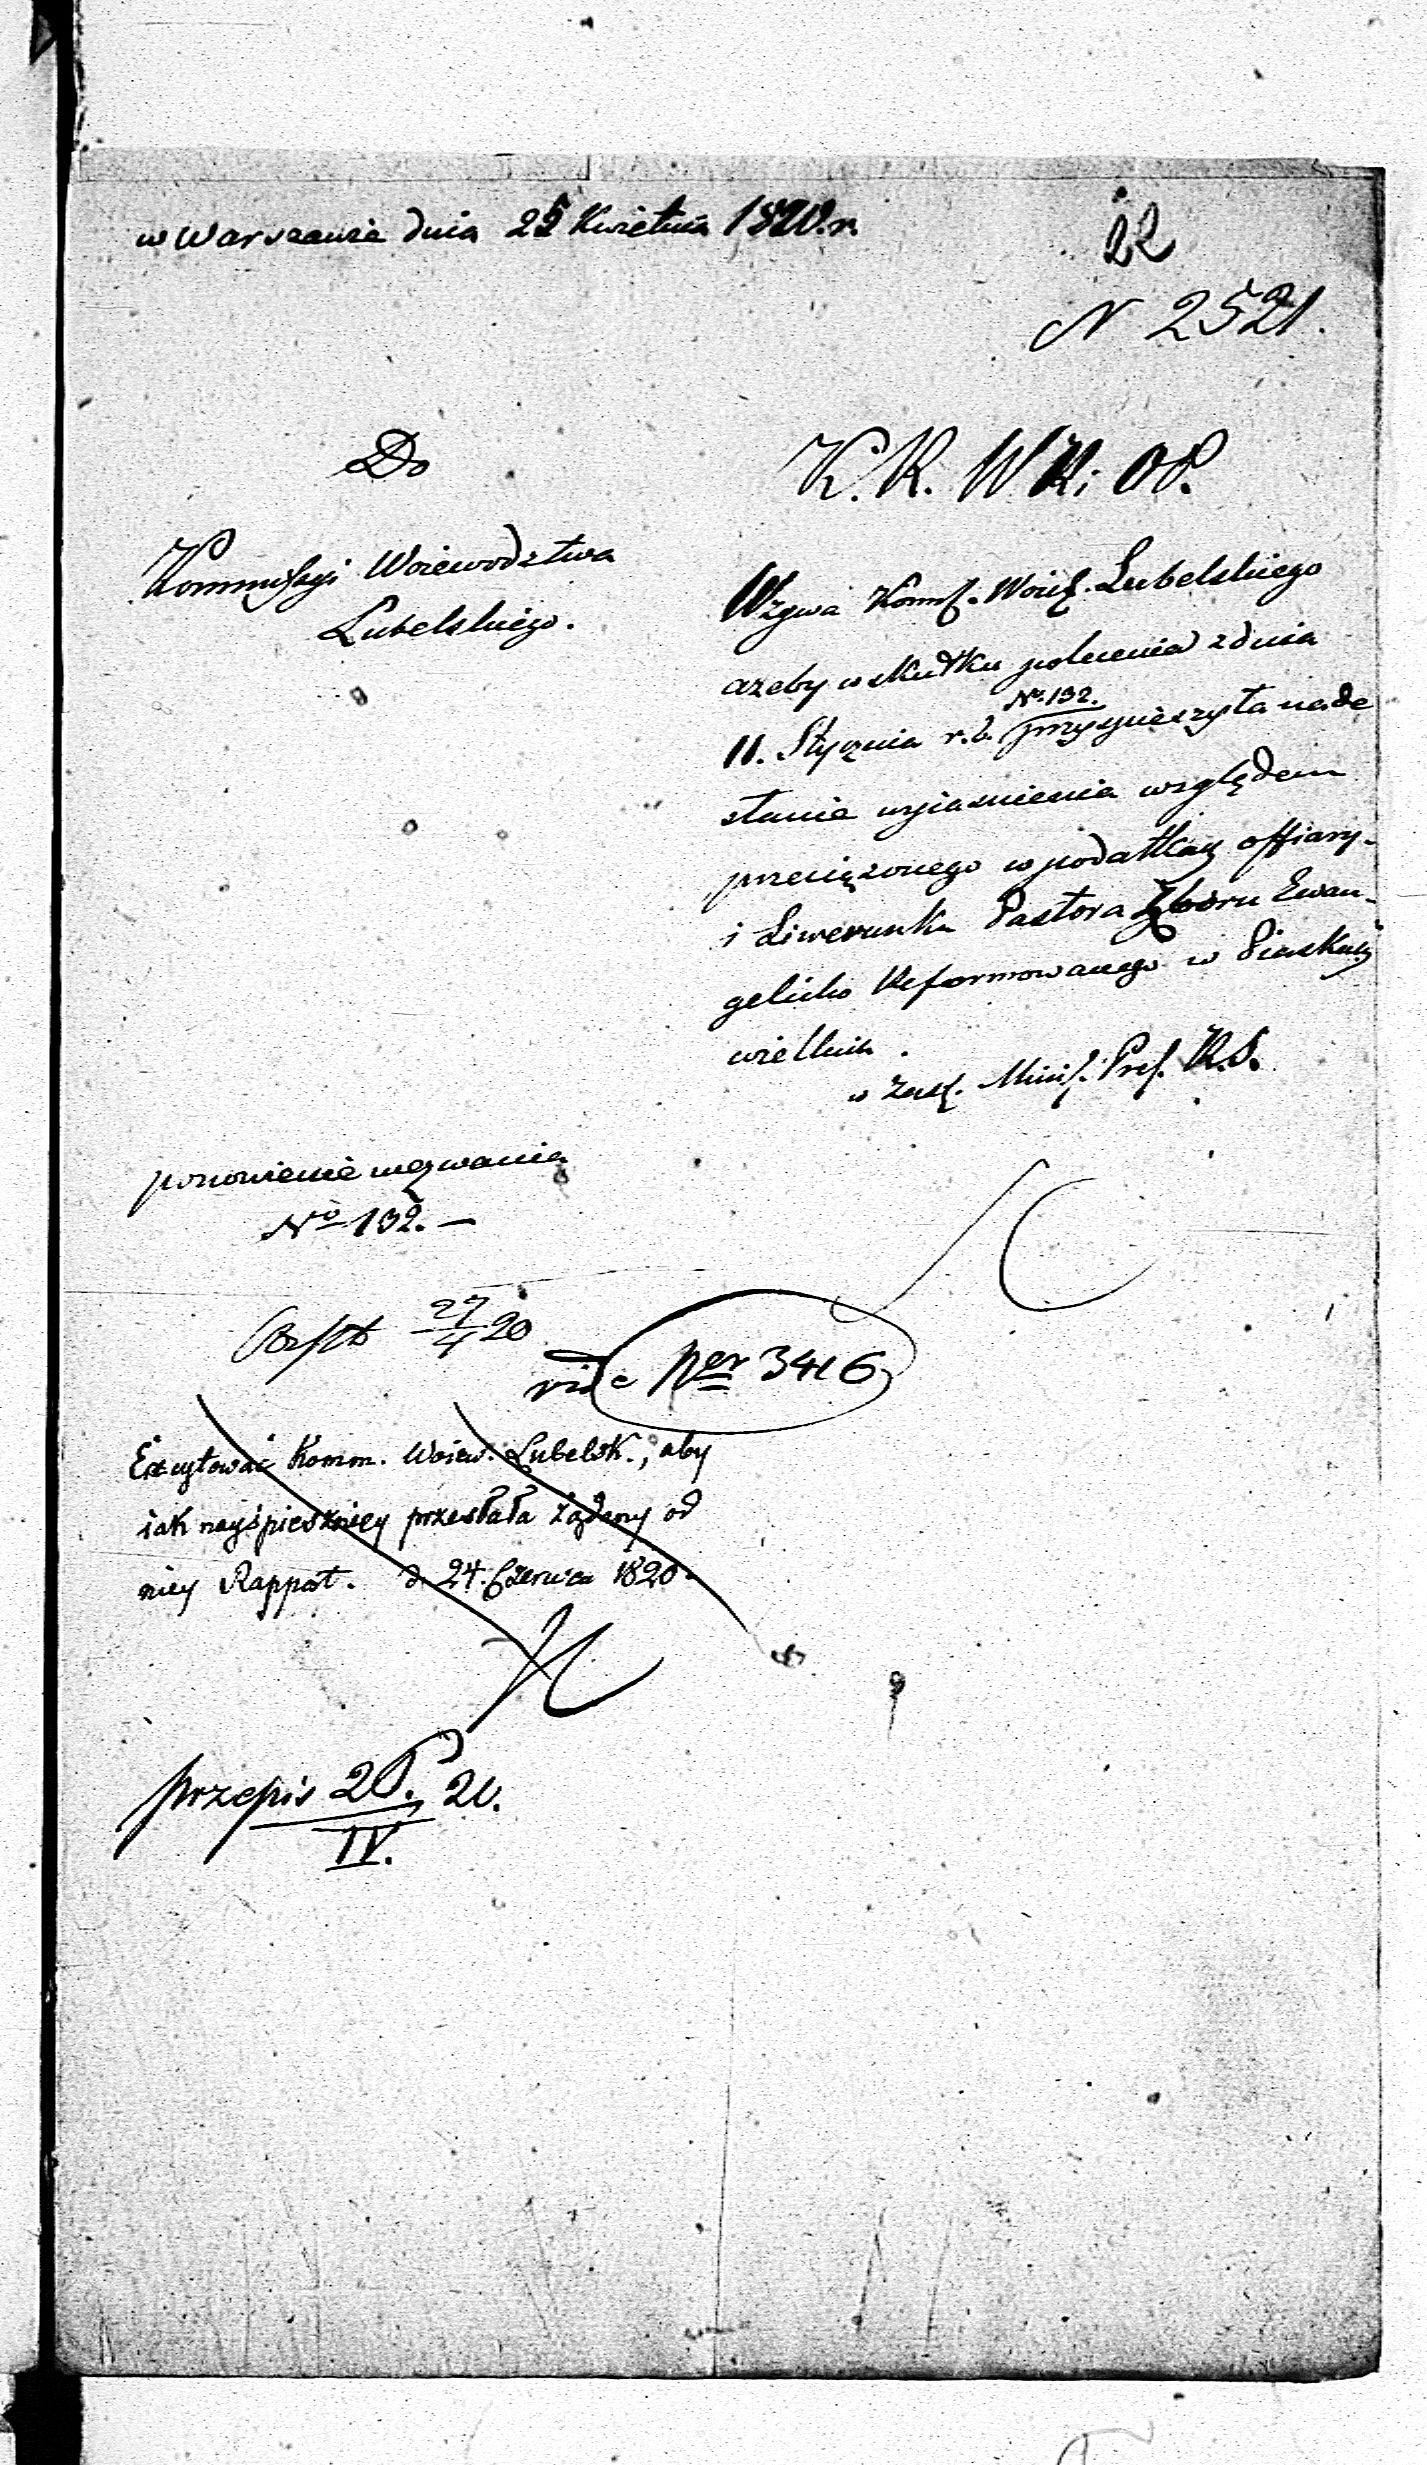 w Warszawie dnia 25 Kwietnia 1820. r.
22
N 2521.
Do
Kommissyi Woiewodztwa
Lubelskiego.
K. R. W R. i O P.
Wzywa Komss. Woiew. Lubelskiego
azeby w skutku polecenia z dnia
11. Stycznia r. b. No. 132. przyspieszyła nade
słanie wyiasnienia względem
przeciązonego w podatkach offiary
i Liwerunku Pastora Zboru Ewan-
gelicko Reformowanego w Piaskach
wielkich.
w Zast. Minis. Prez. R. S.
ponowienie wezwania
No 132. —
27/4 20
vide Ner 3416
Excytować Komm. Woiew. Lubelsk., aby
iak nayśpieszniey przesłała żądany od
niey Rapport. d. 24. Czerwca 1820.
przepis
IV.